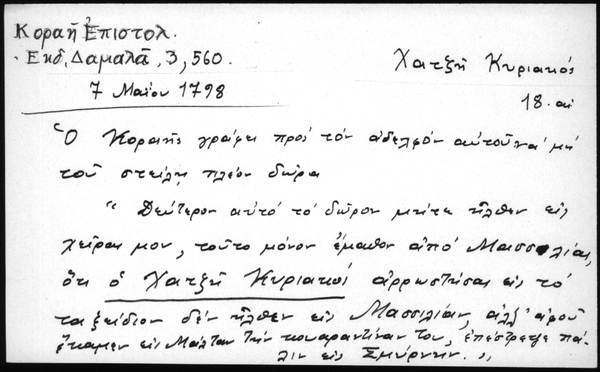 Κοραῆ Ἐπιστολ.
Ἐκδ. Δαμαλᾶ, 3, 560.
Χατζῆ Κυριακός
7 Μαΐου 1798
18. αἰ
Ὁ Κοραῆς γράφει πρός τόν ἀδελφόν αὐτοῦ νά μή
τοῦ στείλῃ πλέον δῶρα
" Δεύτερον αὐτό τό δῶρον μήτε ἦλθεν εἰς
χεῖρας μου, τοῦτο μόνον ἔμαθον ἀπό Μασσιλίας,
ὅτι ὁ Χατζῆ Κυριακός ἀρρωστήσας εἰς τό
ταξείδιον δέν ἦλθεν εἰς Μασσιλίαν, ἀλλ' ἀφοῦ
ἔκαμεν εἰς Μάλταν τήν κουαραντίναν του, ἐπέστρεψε πά-
λιν εἰς Σμύρνην. "